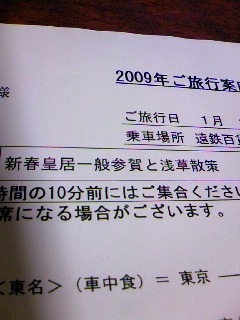 2009年ご旅行案内
様
ご旅行日　1月
乗車場所　遠鉄百貨
新春皇居一般参賀と浅草散策
時間の10分前にはご集合ください
席になる場合がございます。
東名＞（車中食）＝ 東京 ―